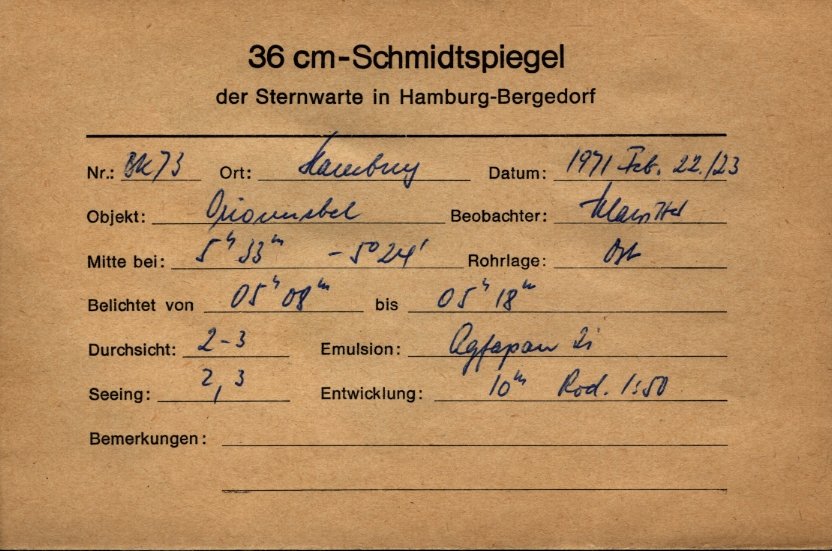 36 cm-Schmidtspiegel
der Sternwarte in Hamburg-Bergedorf
Nr.: BK73 Ort: Hamburg Datum: 1971 Feb. 22./23
Objekt: Orionnebel Beobachter:
Mitte bei: 5ʰ 33ᵐ -5° 24' Rohrlage: Ost
Belichtet von 05ʰ 08ᵐ bis 05ʰ 18ᵐ
Durchsicht: 2-3 Emulsion: Agfapan
Seeing: 2,3 Entwicklung: 10ᵐ Rod. 1:50
Bemerkungen: